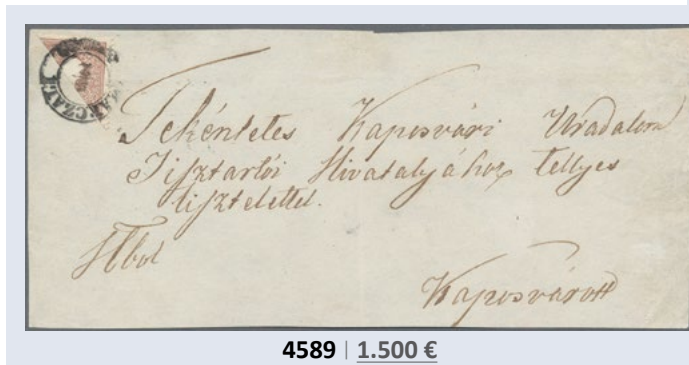 Tekéntetes Kaposvári Uradalom
Tisztartói Hivatalyához tellyes
tisztelettel.
Kaposvárott
4589 | 1.500 €